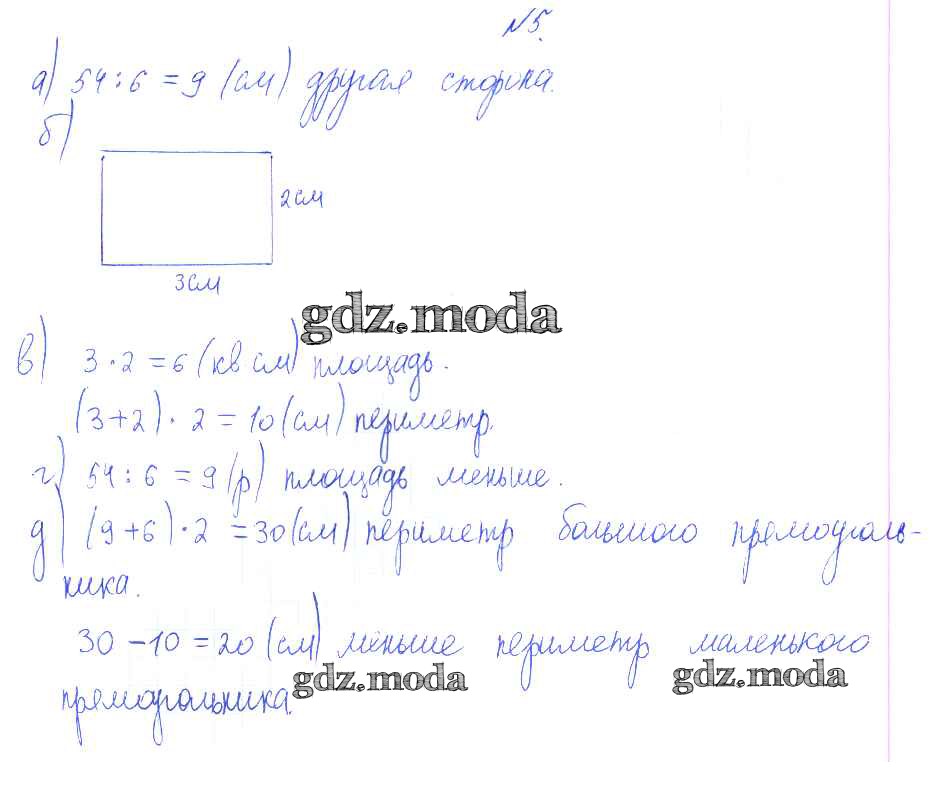 №5.
а) 54 : 6 = 9 (см) другая сторона.
б)
2 см
3 см
gdz.moda
в) 3 · 2 = 6 (кв см) площадь.
(3 + 2) · 2 = 10 (см) периметр.
г) 54 : 6 = 9 (р) площадь меньше.
д) (9 + 6) · 2 = 30 (см) периметр большого прямоуголь-
ника.
30 - 10 = 20 (см) меньше периметр маленького
прямоугольника.
gdz.moda
gdz.moda